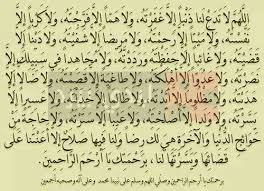 اللَّهُمَّ لَا تَدَعْ لَنَا ذَنْبًا إِلَّا غَفَرْتَهُ، وَلَا هَمًّا إِلَّا فَرَّجْتَهُ، وَلَا كَرْبًا إِلَّا
نَفَّسْتَهُ، وَلَا مَيِّتًا إِلَّا رَحِمْتَهُ، وَلَا مَرِيضًا إِلَّا شَفَيْتَهُ، وَلَا دَيْنًا إِلَّا
قَضَيْتَهُ، وَلَا غَائِبًا إِلَّا حَفِظْتَهُ وَرَدَدْتَهُ، وَلَا مُجَاهِدًا فِي سَبِيلِكَ إِلَّا
نَصَرْتَهُ، وَلَا عَدُوًّا إِلَّا أَهْلَكْتَهُ، وَلَا طَاغِيَةً إِلَّا قَصَمْتَهُ، وَلَا ضَالًّا إِلَّا
هَدَيْتَهُ، وَلَا مَظْلُومًا إِلَّا وَلَا إِلَّا خَذَلْتَهُ، وَلَا عَسِيرًا إِلَّا
يَسَّرْتَهُ، وَلَا وَلَدًا إِلَّا أَصْلَحْتَهُ، وَلَا عَيْبًا إِلَّا سَتَرْتَهُ، وَلَا حَاجَةً مِنْ
حَوَائِجِ الدُّنْيَا وَالْآخِرَةِ هِيَ لَكَ رِضًا وَلَنَا فِيهَا صَلَاحٌ إِلَّا أَعَنْتَنَا عَلَى
قَضَائِهَا وَيَسَّرْتَهَا لَنَا، بِرَحْمَتِكَ يَا أَرْحَمَ الرَّاحِمِينَ.
برحمتك يا أرحم الراحمين وصلي اللهم وسلم على نبينا محمد وعلى آله وصحبه أجمعين